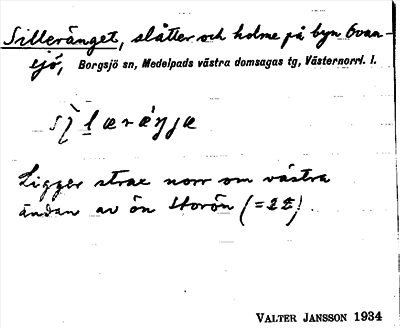 Silleränget, slåtter och holme på byn Ovan-
sjö, Borgsjö sn, Medelpads västra domsagas tg, Västernorrl. l.
Ligger strax norr om västra
ändan av ön Storön (= 22).
VALTER JANSSON 1934